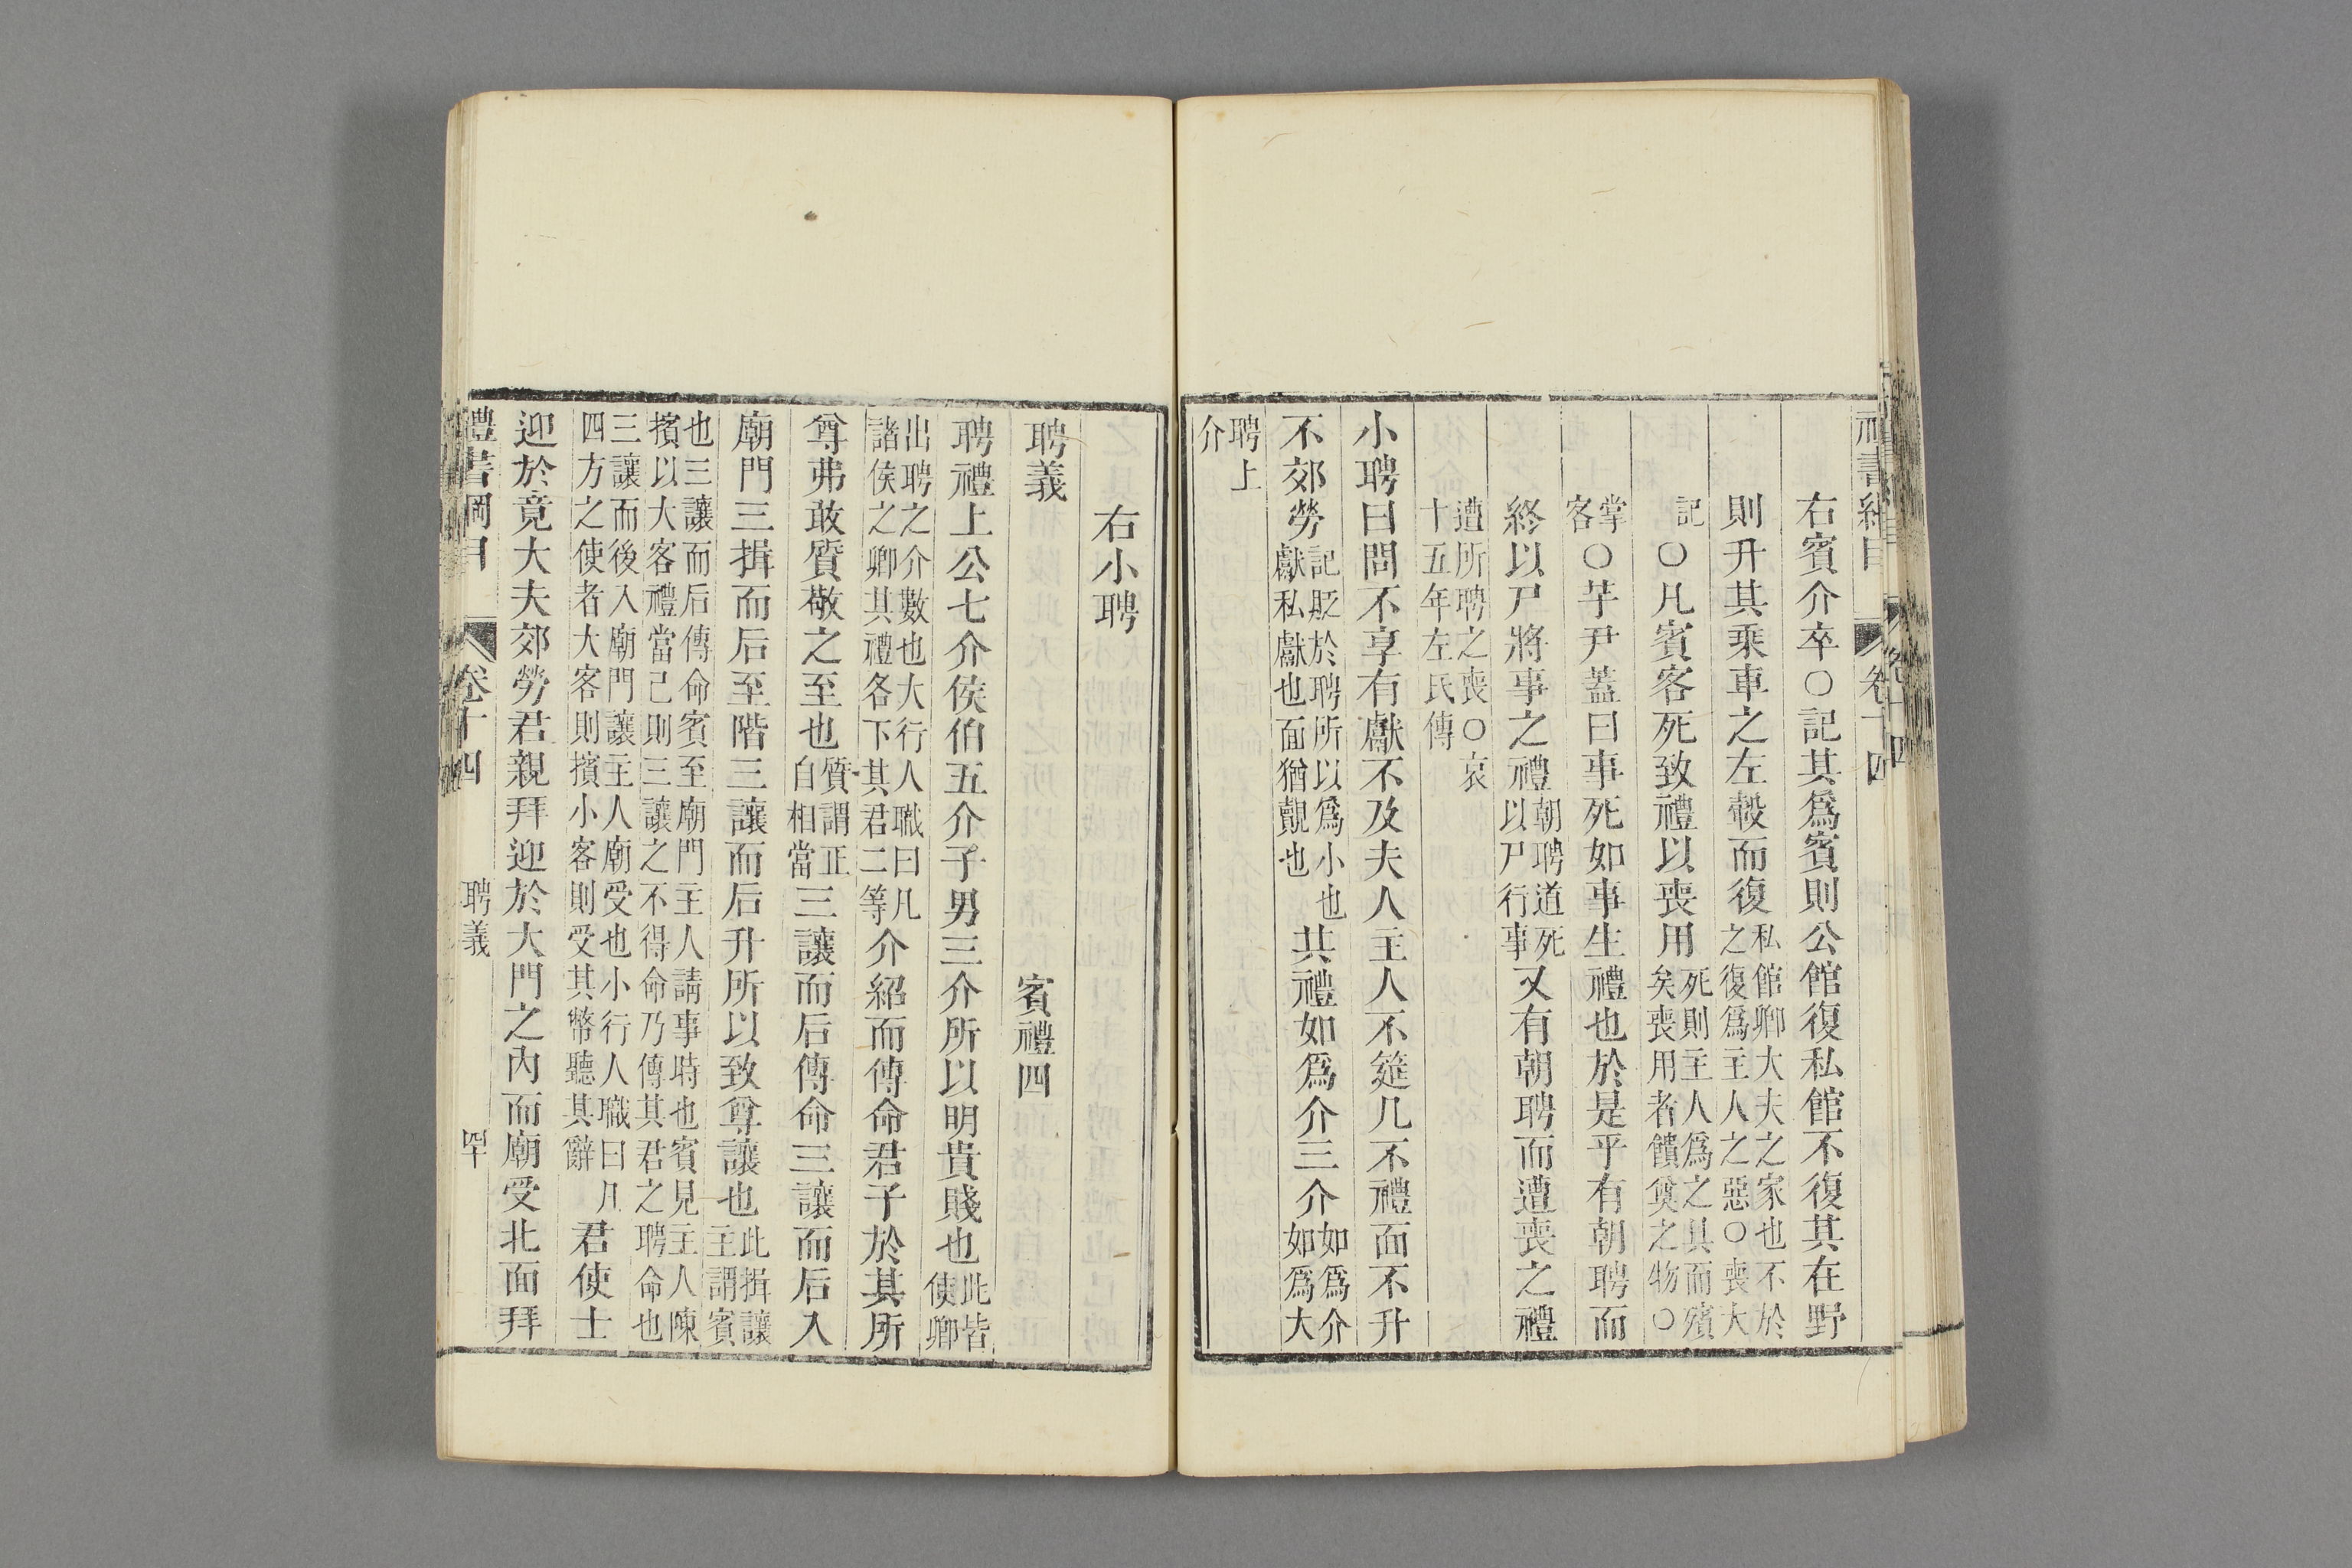 禮書綱目 卷十四
右賓介卒○記其爲賓則公館復私館不復其在野
則升其乘車之左轂而復私館卿大夫之家也不於之復爲主人之惡○喪大
記○凡賓客死致禮以喪用死則主人爲之具而殯矣喪用者饋奠之物○
掌客○芋尹蓋曰事死如事生禮也於是乎有朝聘而
終以尸將事之禮朝聘道死以尸行事又有朝聘而遭喪之禮
遭所聘之喪○哀十五年左氏傳
小聘曰問不享有獻不及夫人主人不筵几不禮面不升
不郊勞記貶於聘所以爲小也獻私獻也面猶覿也其禮如爲介三介如爲介如爲大
聘上介
右小聘
聘義 賓禮四
聘禮上公七介侯伯五介子男三介所以明貴賤也此皆使卿
出聘之介數也大行人職曰凡諸侯之卿其禮各下其君二等介紹而傳命君子於其所
尊弗敢質敬之至也質謂正自相當三讓而后傳命三讓而后入
廟門三揖而后至階三讓而后升所以致尊讓也此揖讓主謂賓
也三讓而后傳命賓至廟門主人請事時也賓見主人陳擯以大客禮當己則三讓之不得命乃傳其君之聘命也
三讓而後入廟門讓主人廟受也小行人職曰凡四方之使者大客則擯小客則受其幣聽其辭君使士
迎於竟大夫郊勞君親拜迎於大門之內而廟受北面拜
禮書綱目 卷十四 聘義